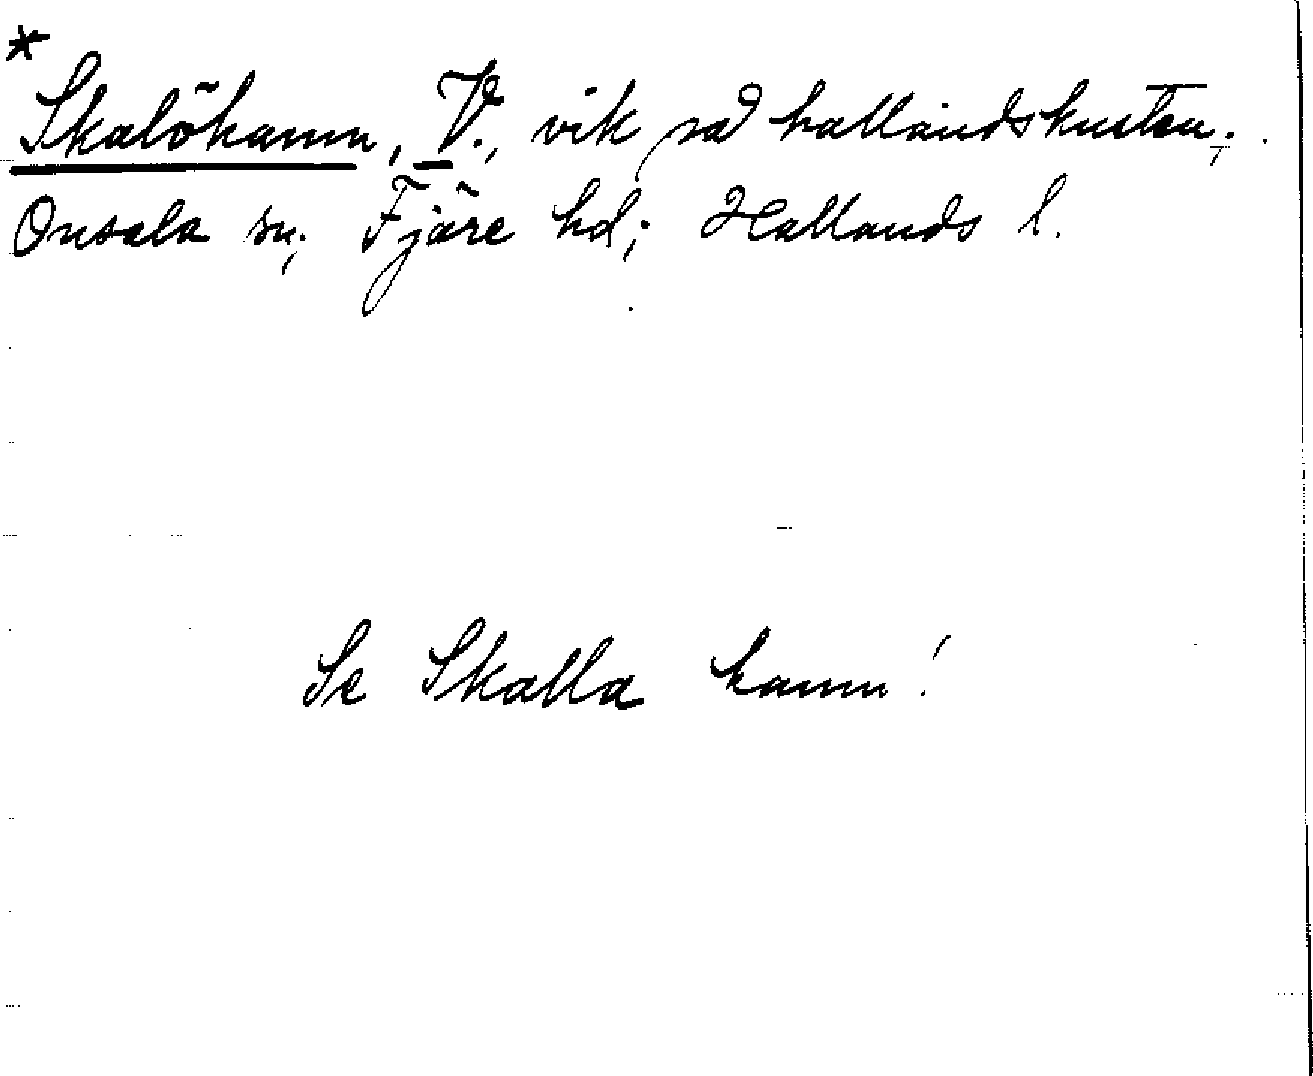 *
Skalöhamn, V., vik på hallandskusten;
Onsala sn; Fjäre hd; Hallands l.
Se Skalla hamn!